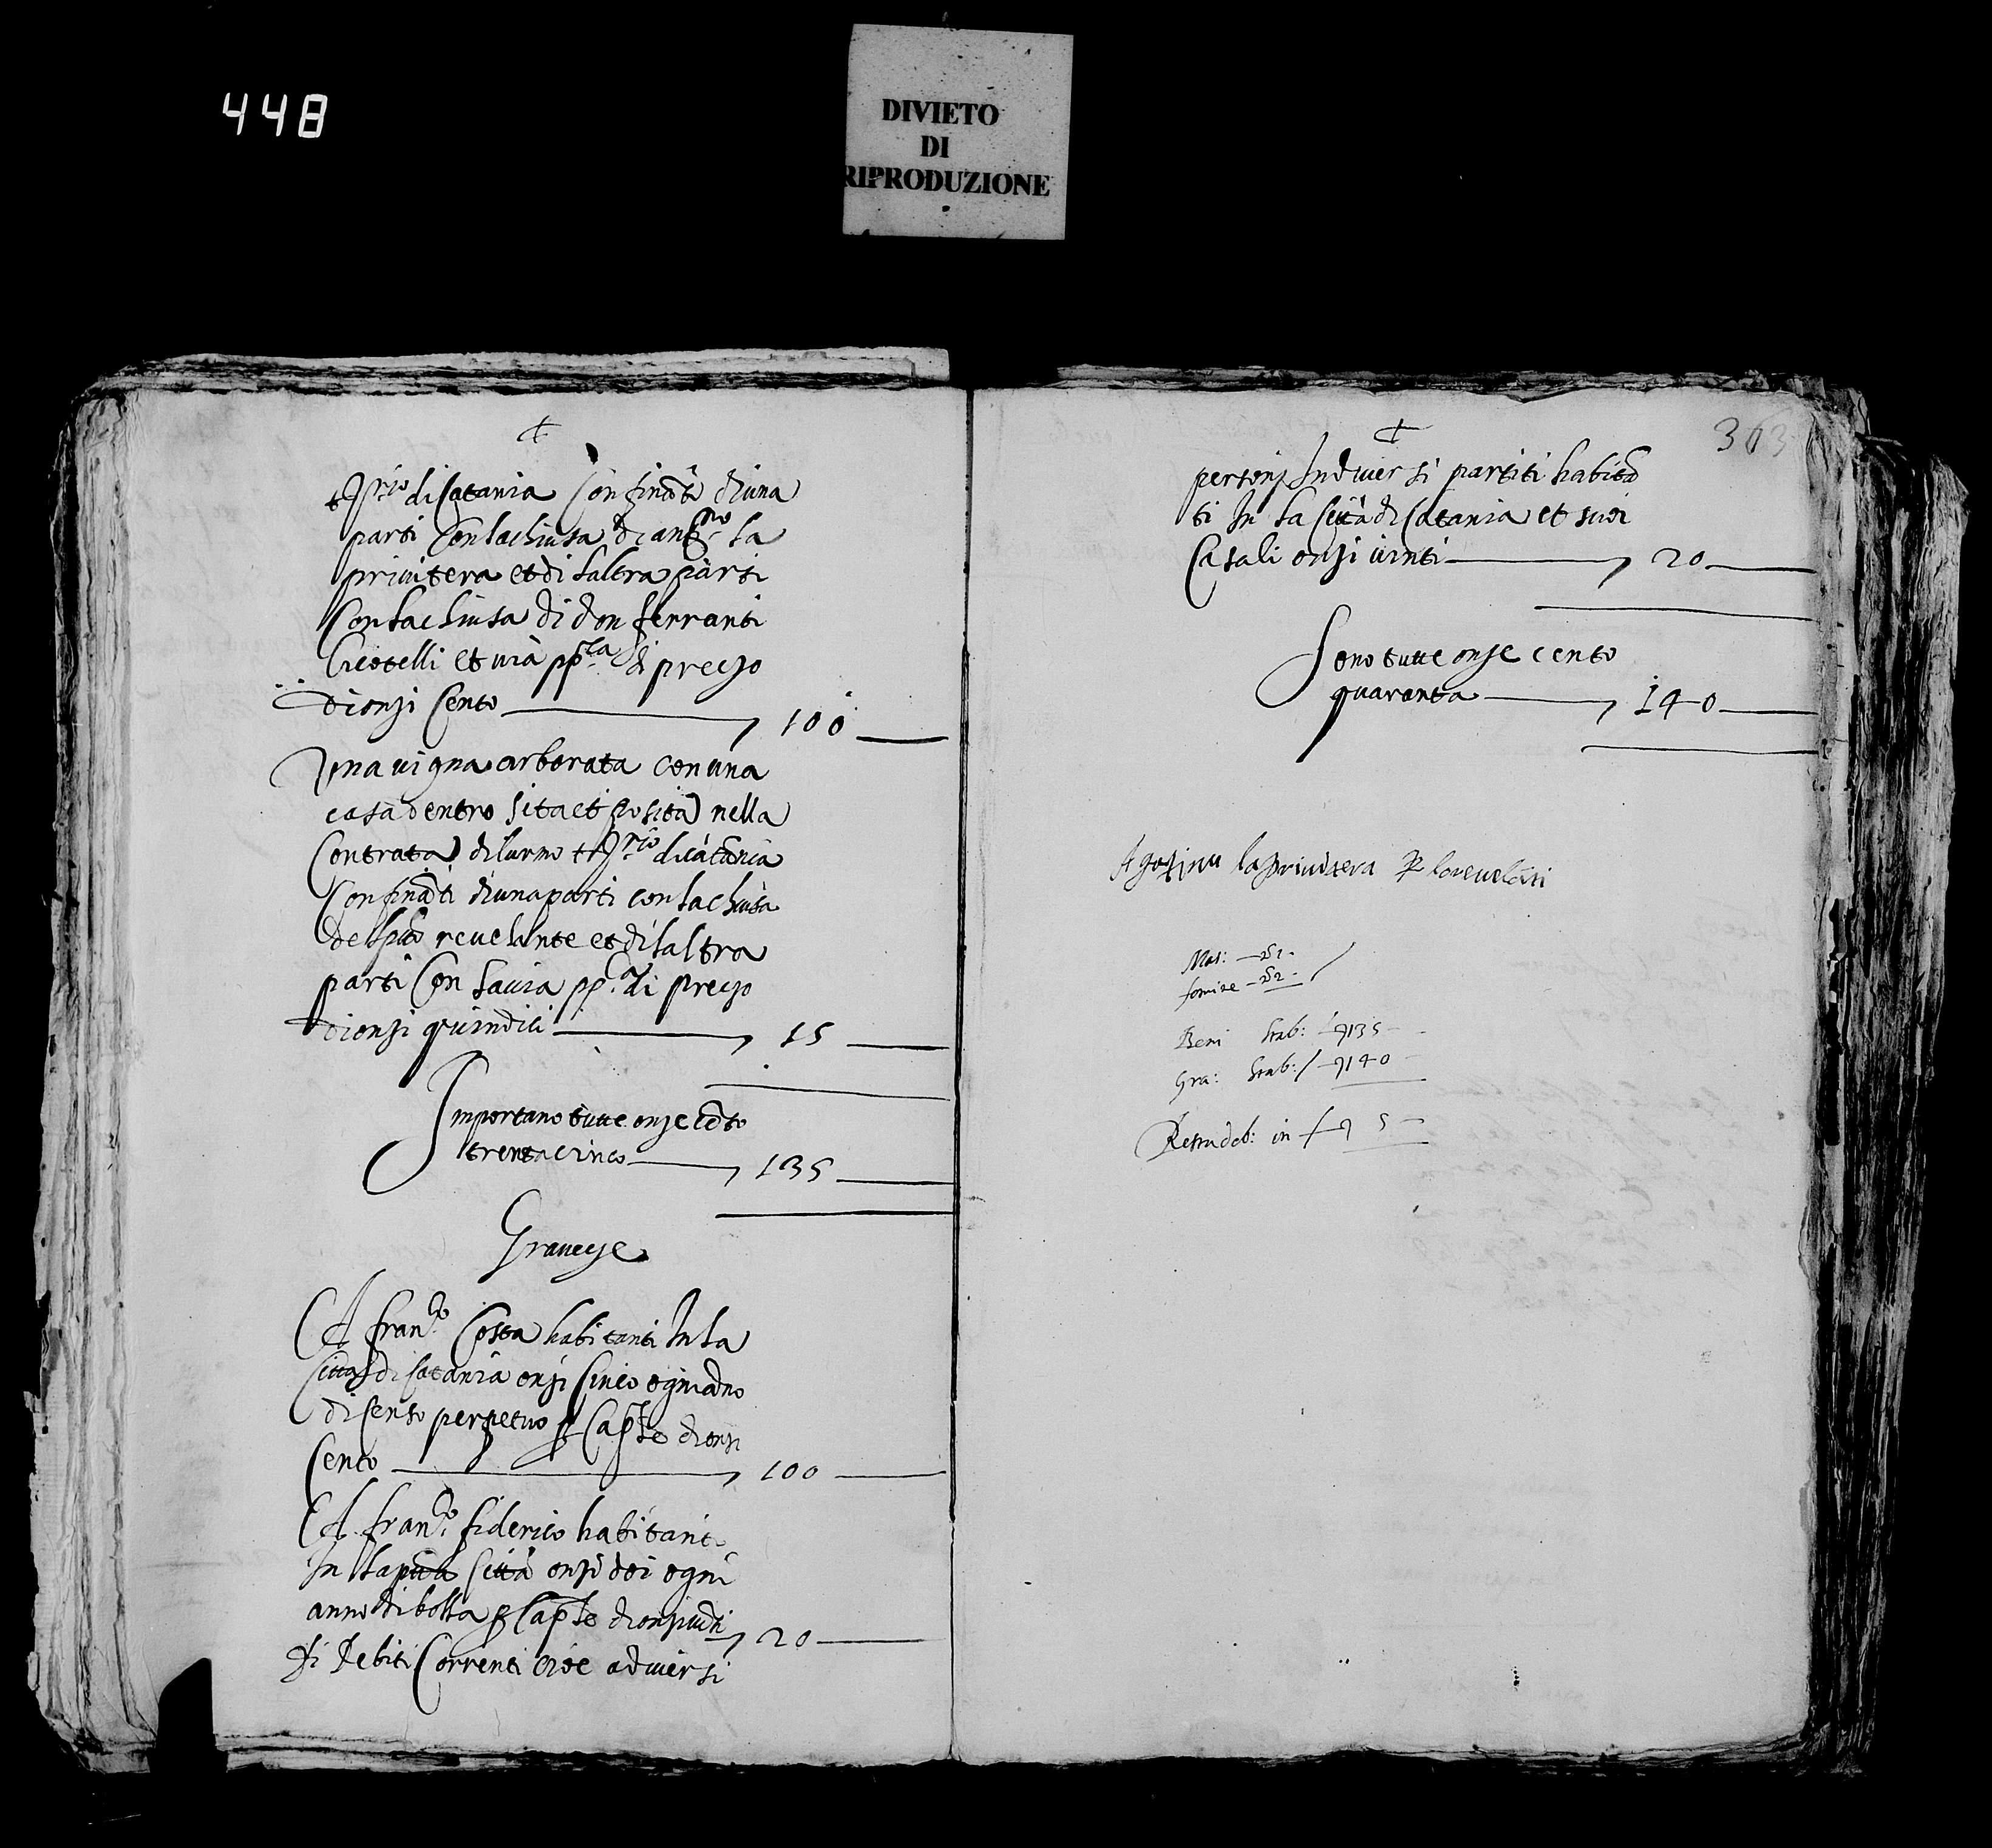 448
DIVIETO
DI
RIPRODUZIONE
di Catania Confinãti di una
parti Con la chiusa di la
privitera et di laltra parti
Con la chiusa di don ferranti
et via pp.ta di preczo
di onzi Cento 100
Una vigna arborata con una
casa dentro sita et posita nella
Contrata di di catania
Confinãti di una parti con la chiusa
del revelante et di laltra
parti Con la via pp.a di preczo
di onzi quindici 15
Importano tutte onze cẽto
trenta cinco 135
Gravecze
A fran.co Costa habitanti In la
Citta di Catania onzi Cinco ogni ãno
di Censo perpetuo p Cap.le di onzi
Cento 100
A fran.co fiderico habitanti
In la Città onzi doi ogni
anno di bolla p Cap.le di onzi vinti 20
Di Debiti Correnti cioe a diversi
363
personi In diversi partiti habitã
ti In la Città di Catania et suoi
Casali onzi vinti 20
Sono tutte onze cento
quaranta 140
Agostinu la privitera p lo revelãti
Mas: 1
2
Beni Stab: 135
Gra: Stab: 140
Resta deb: in 5